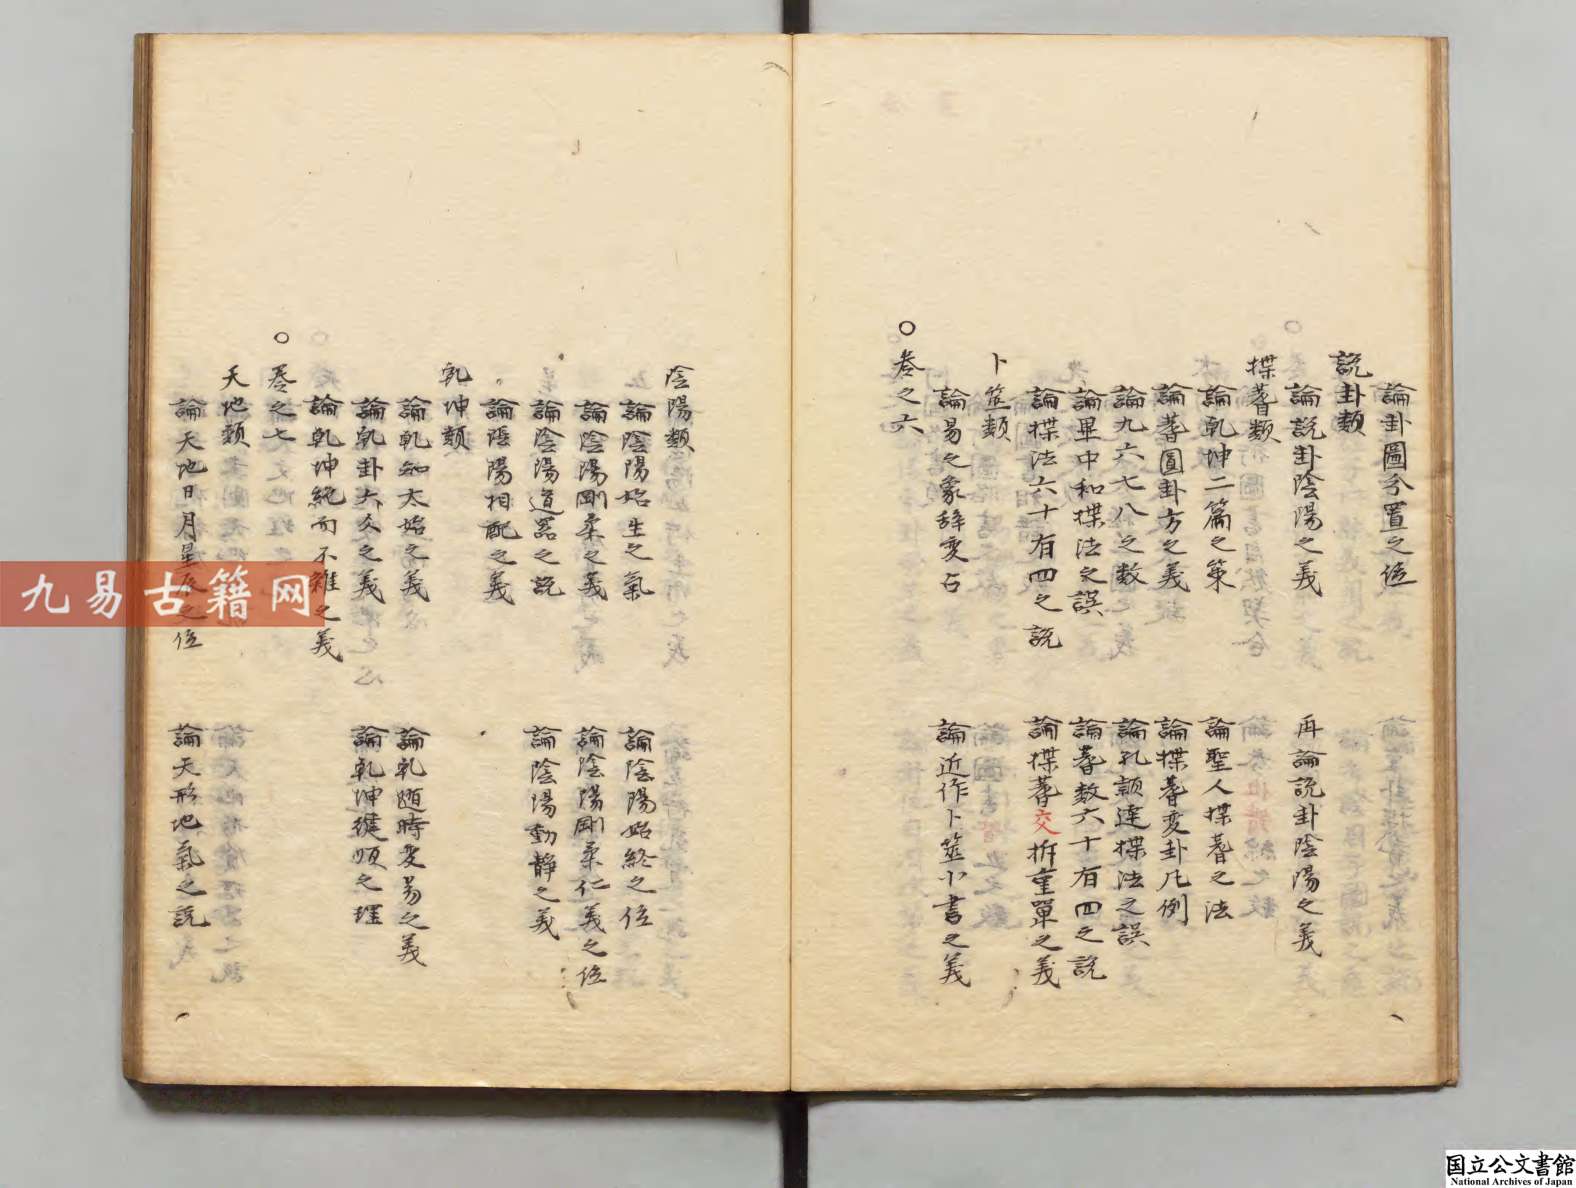 論卦圖分置之位
說卦類
論說卦陰陽之義
再論說卦陰陽之義
揲蓍類
論乾坤二篇之策
論聖人揲蓍之法
論蓍圓卦方之義
論揲蓍變卦凡例
論九六七八之数
論孔穎達揲法之誤
論畢中和揲法之誤
論蓍数六十有四之說
論揲法六十有四之說
論揲蓍交拆重單之義
卜筮類
論易之象辭変占
論近作卜筮小書之義
○卷之六
陰陽類
論陰陽始生之氣
論陰陽始終之位
論陰陽剛柔之義
論陰陽剛柔仁義之位
論陰陽道器之說
論陰陽動靜之義
論陰陽相配之義
乾坤類
論乾知太始之義
論乾隨時变易之義
論乾卦六爻之義
論乾坤健順之理
論乾坤純而不雜之義
○卷之七
天地類
論天地日月星辰之位
論天形地氣之說
九易古籍网
国立公文書館
National Archives of Japan